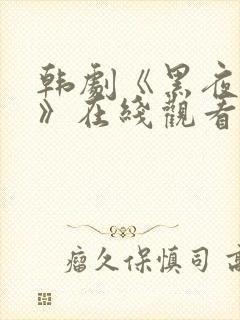 韩劇《黑夜
》在綫觀看
瘤久保慎司 高